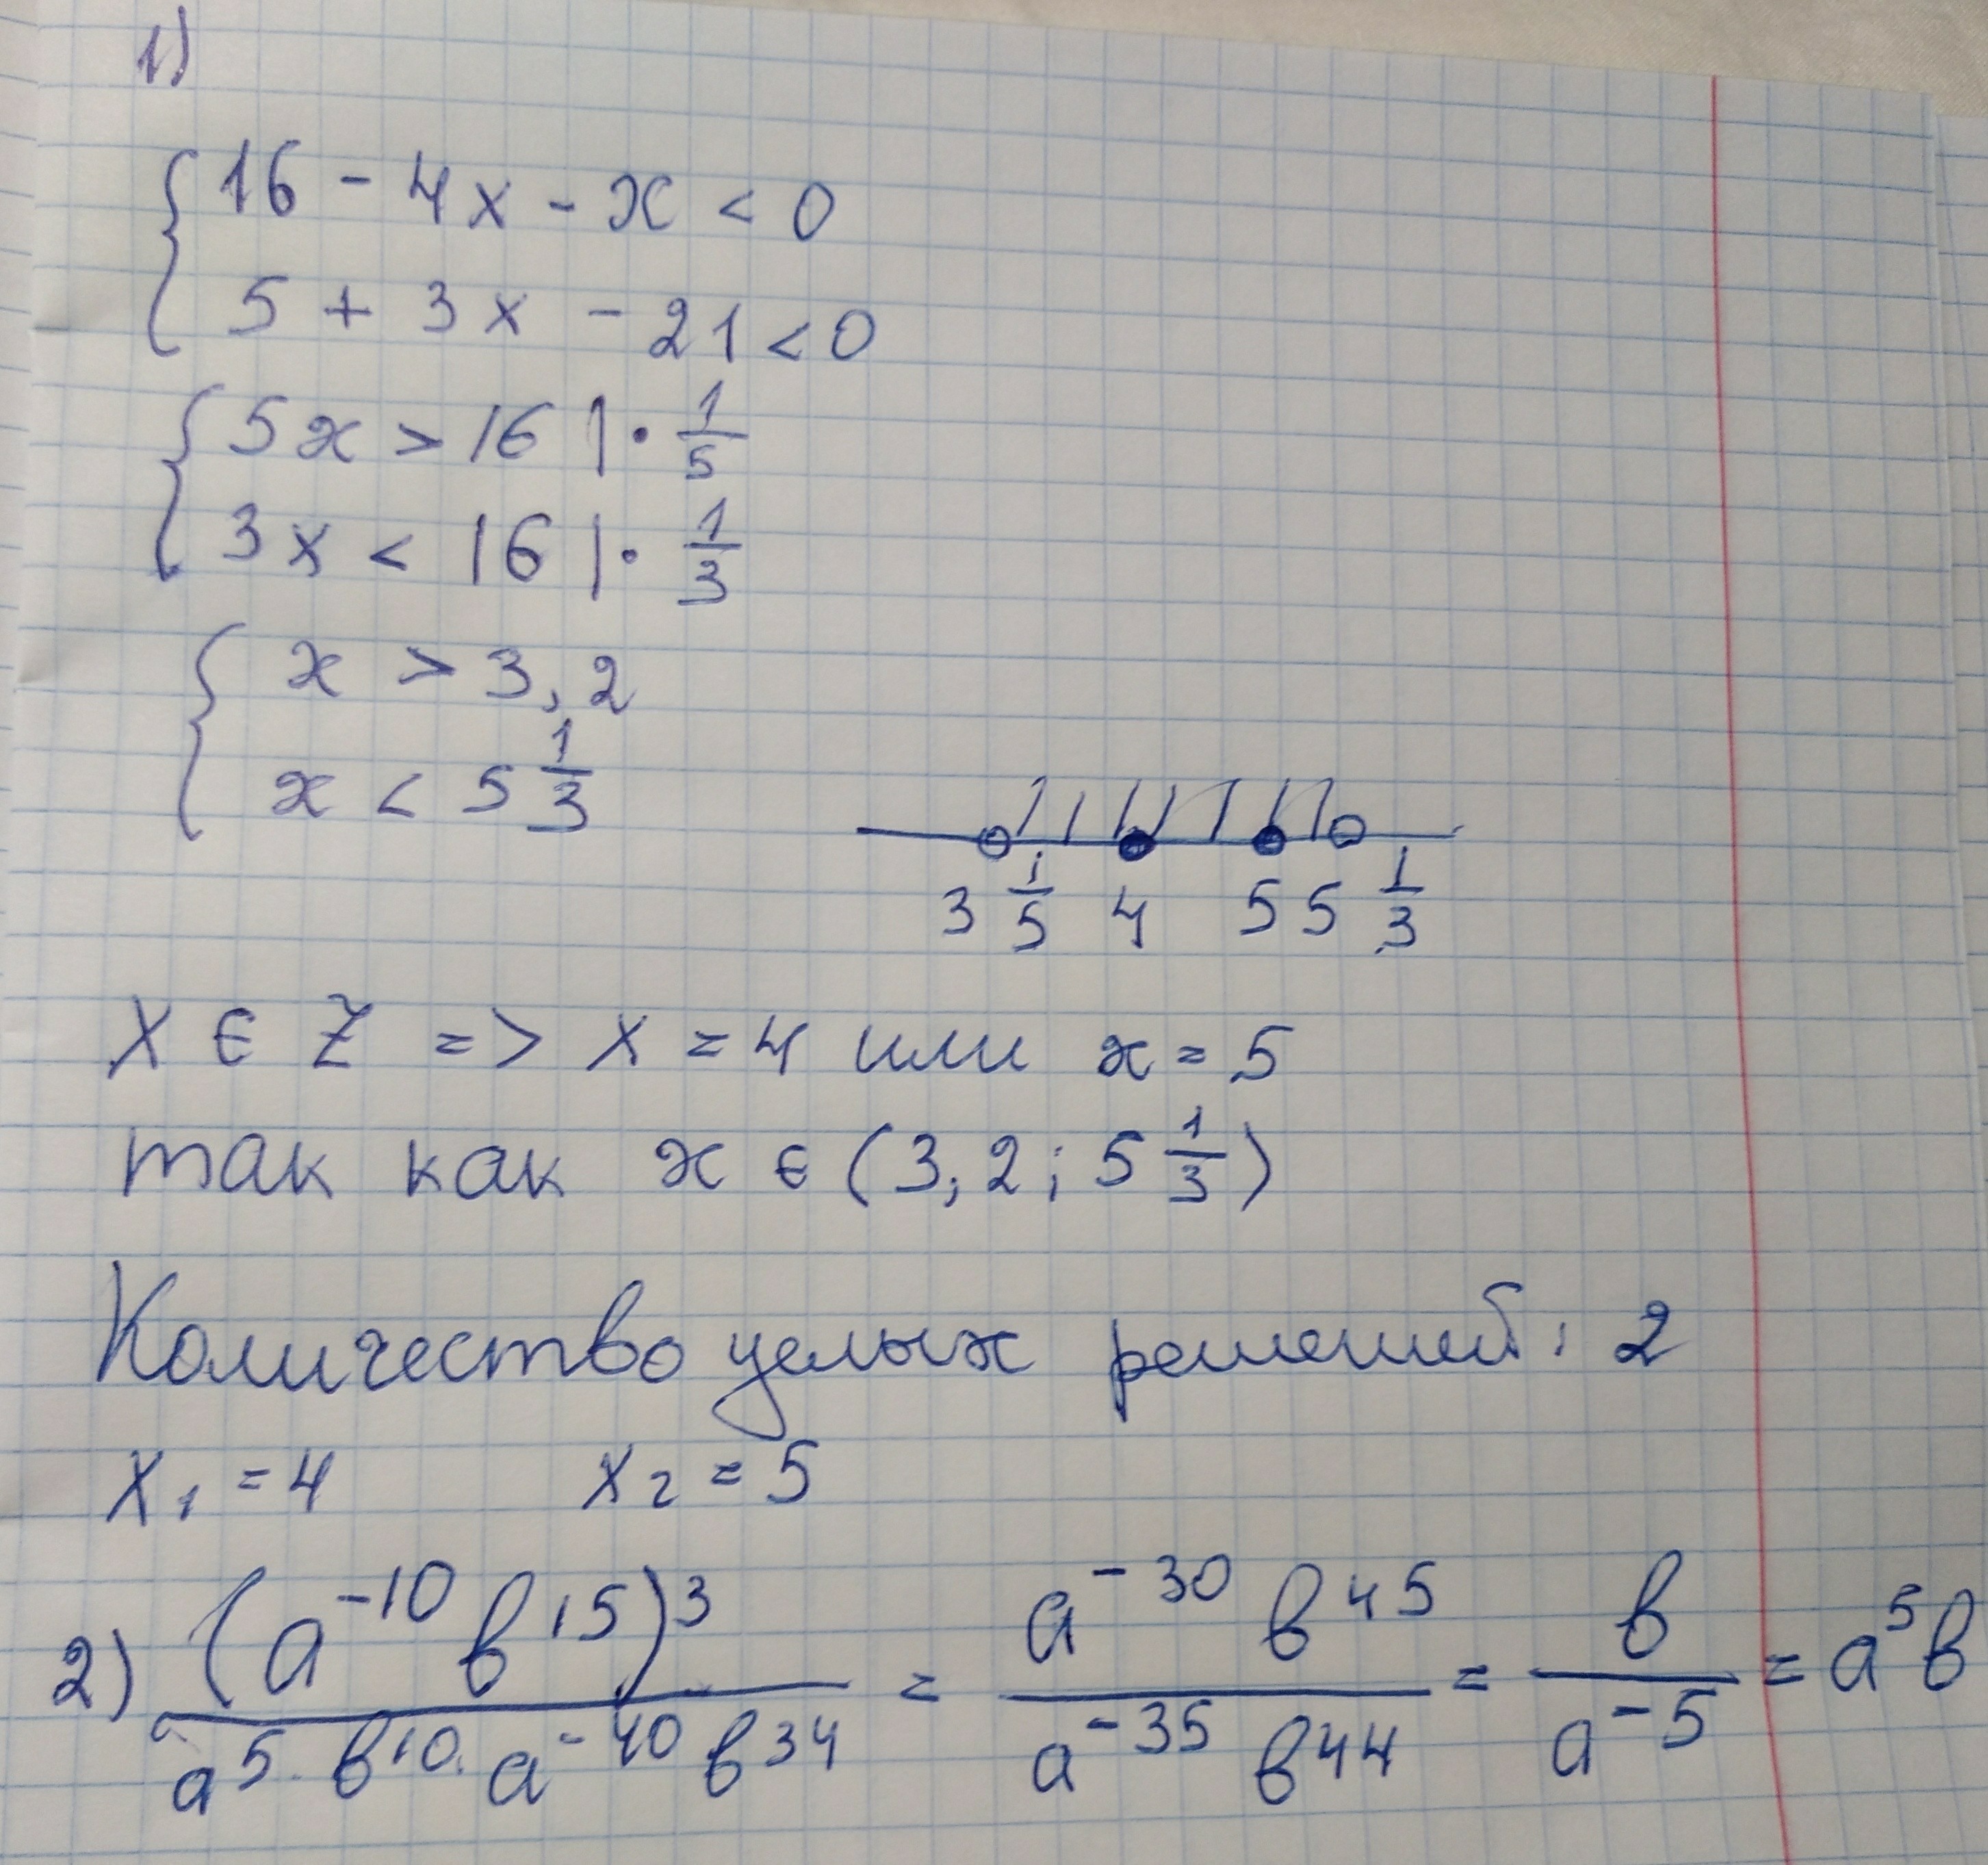 1)
{ 16 - 4x - x < 0
5 + 3x - 21 < 0
{ 5x > 16 | · 1/5
3x < 16 | · 1/3
{ x > 3,2
x < 5 1/3
3 1/5 4 5 5 1/3
X ∈ Z => x = 4 или x = 5
так как x ∈ (3,2; 5 1/3)
Количество целых решений: 2
x₁ = 4 x₂ = 5
2) (a⁻¹⁰ b¹⁵)³ / (a⁵ · b¹⁰ · a⁻⁴⁰ b³⁴) = a⁻³⁰ b⁴⁵ / (a⁻³⁵ b⁴⁴) = b / a⁻⁵ = a⁵b